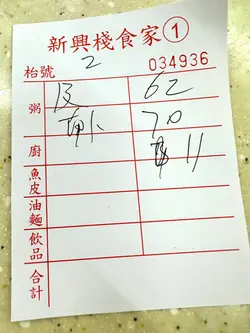 新興棧食家①
枱號 2 034936
粥 皮 62
70
廚 11
魚皮
油麵
飲品
合計